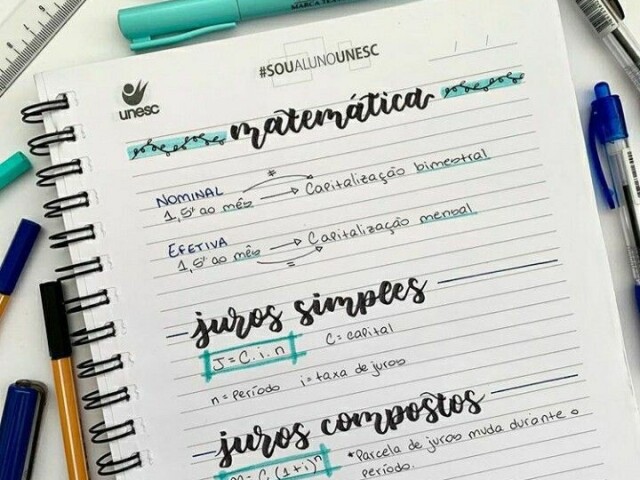 #SOUALUNOUNESC
unesc
matemática
NOMINAL
1,5% ao mês → Capitalização bimestral
≠
EFETIVA
1,5% ao mês → Capitalização mensal
=
juros simples
J = C. i. n
C = capital
n = período i = taxa de juros
juros compostos
M = C. (1+i)ⁿ
*Parcela de juros muda durante o
período.